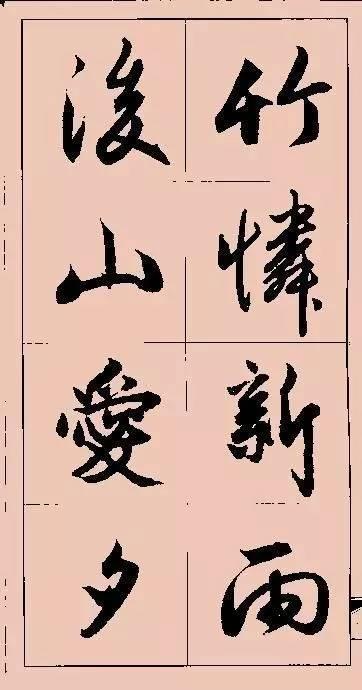 竹憐新雨
後山愛夕